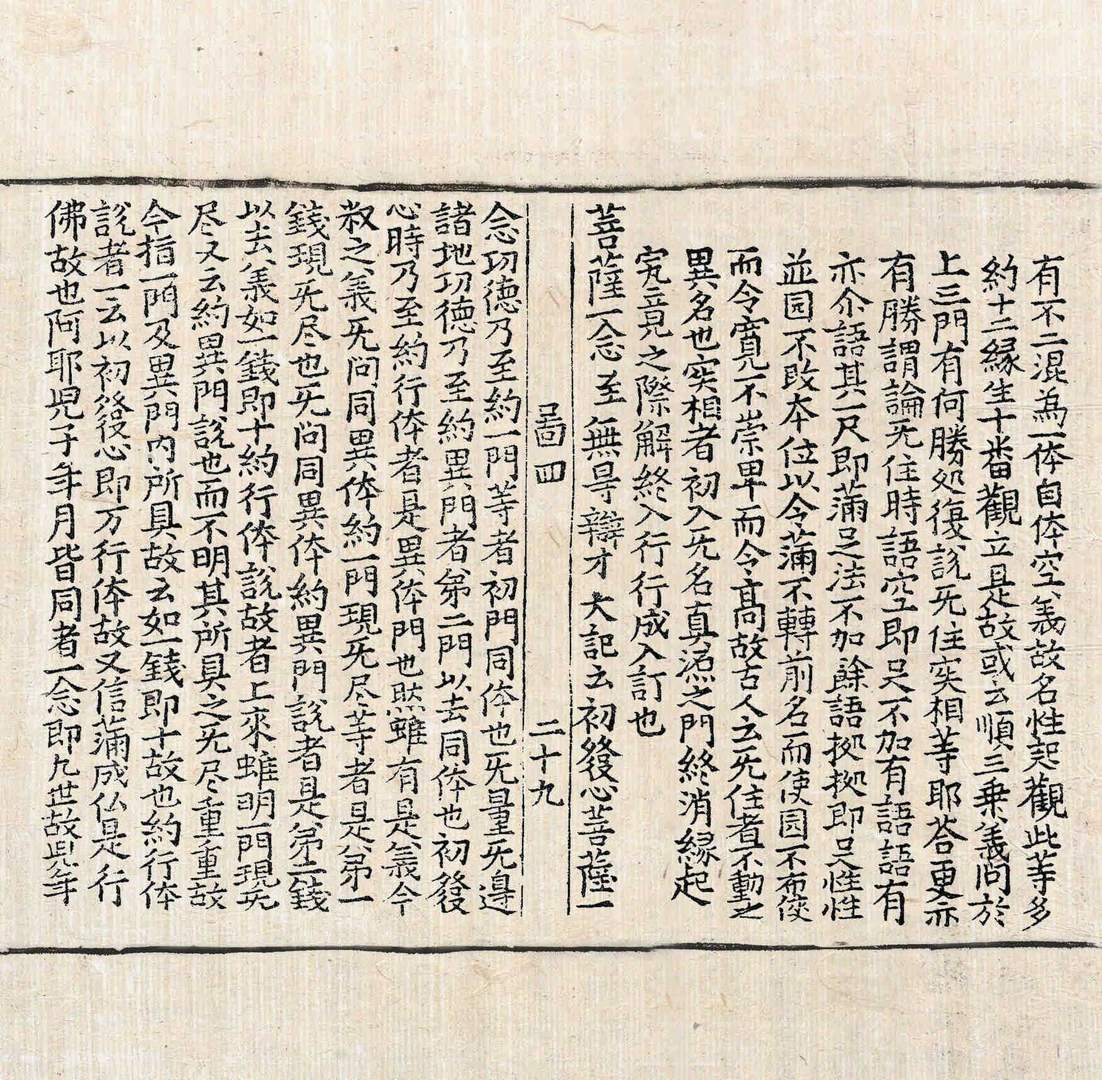 有不二混為一体自体空義故名性起觀此等多
約十二緣生十番觀立是故或云順三乗義問於
上三門有何勝処復說旡住实相等耶荅更亦
有勝謂論旡住時語空即足不加有語語有
亦尒語其一尺即滿足法不加餘語拠拠即足性性
並圆不敗本位以令蒲不轉前名而使圆不布侠
而令寬不崇卑而令髙故古人云旡住者不動之
異名也实相者初入旡名真源之門終消緣起
䆒竟之際解終入行行成入訂也
菩薩一念至無㝵辯才大記云初發心菩薩一
啚四 二十九
念㓛德乃至約一門等者初門同体也旡量旡邉
諸地㓛德乃至約異門者第二門以去同体也初發
心時乃至約行体者是異体門也然雖有是義今
叙之義旡問同異体約一門現旡尽等者是第一
錢現旡尽也旡问同異体約異門說者是第二錢
以去義如一錢即十約行体說故者上來雖明一門現旡
尽又云約異門說也而不明其所具之旡尽重重故
今指一門及異門内所具故云如一錢即十故也約行体
說者一云以初發心即万行体故又信蒲成仏是行
佛故也阿耶児子年月皆同者一念即九世故児年